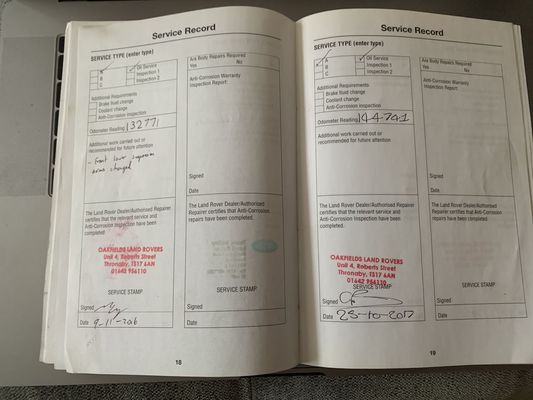 Service Record
SERVICE TYPE (enter type)
A
B
C
Oil Service
Inspection 1
Inspection 2
Additional Requirements
Brake fluid change
Coolant change
Anti-Corrosion inspection
Odometer Reading 132771
Additional work carried out or
recommended for future attention
- Front lower suspension
arms changed
The Land Rover Dealer/Authorised
Repairer certifies that the relevant service and
Anti-Corrosion inspection have been
completed
OAKFIELDS LAND ROVERS
Unit 4, Roberts Street
Thronaby, TS17 6AN
01642 956110
SERVICE STAMP
Signed
Date 9-11-2016
Are Body Repairs Required
Yes No
Anti-Corrosion Warranty
Inspection Report:
Signed
Date
The Land Rover Dealer/Authorised
Repairer certifies that Anti-Corrosion
repairs have been completed.
SERVICE STAMP
Signed
Date
18
Service Record
SERVICE TYPE (enter type)
A
B
C
Oil Service
Inspection 1
Inspection 2
Additional Requirements
Brake fluid change
Coolant change
Anti-Corrosion inspection
Odometer Reading 144741
Additional work carried out or
recommended for future attention
The Land Rover Dealer/Authorised
Repairer certifies that the relevant service and
Anti-Corrosion inspection have been
completed
OAKFIELDS LAND ROVERS
Unit 4, Roberts Street
Thronaby, TS17 6AN
01642 956110
SERVICE STAMP
Signed
Date 25-10-2017
Are Body Repairs Required
Yes No
Anti-Corrosion Warranty
Inspection Report:
Signed
Date
The Land Rover Dealer/Authorised
Repairer certifies that Anti-Corrosion
repairs have been completed.
SERVICE STAMP
Signed
Date
19